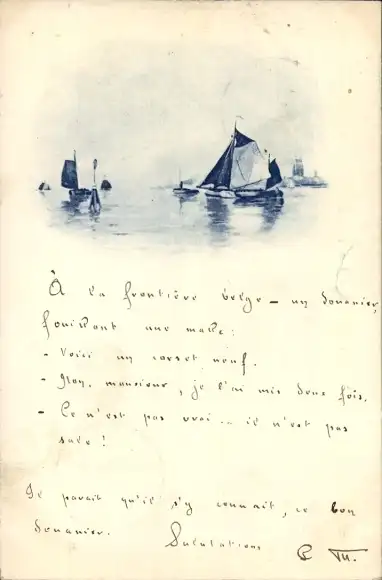 À la frontière belge - un douanier,
fouillant une malle :
- Voici un corset neuf.
- Non, monsieur, je l'ai mis deux fois.
- Ce n'est pas vrai... il n'est pas
sale !
Il parait qu'il s'y connait, ce bon
douanier. Salutations